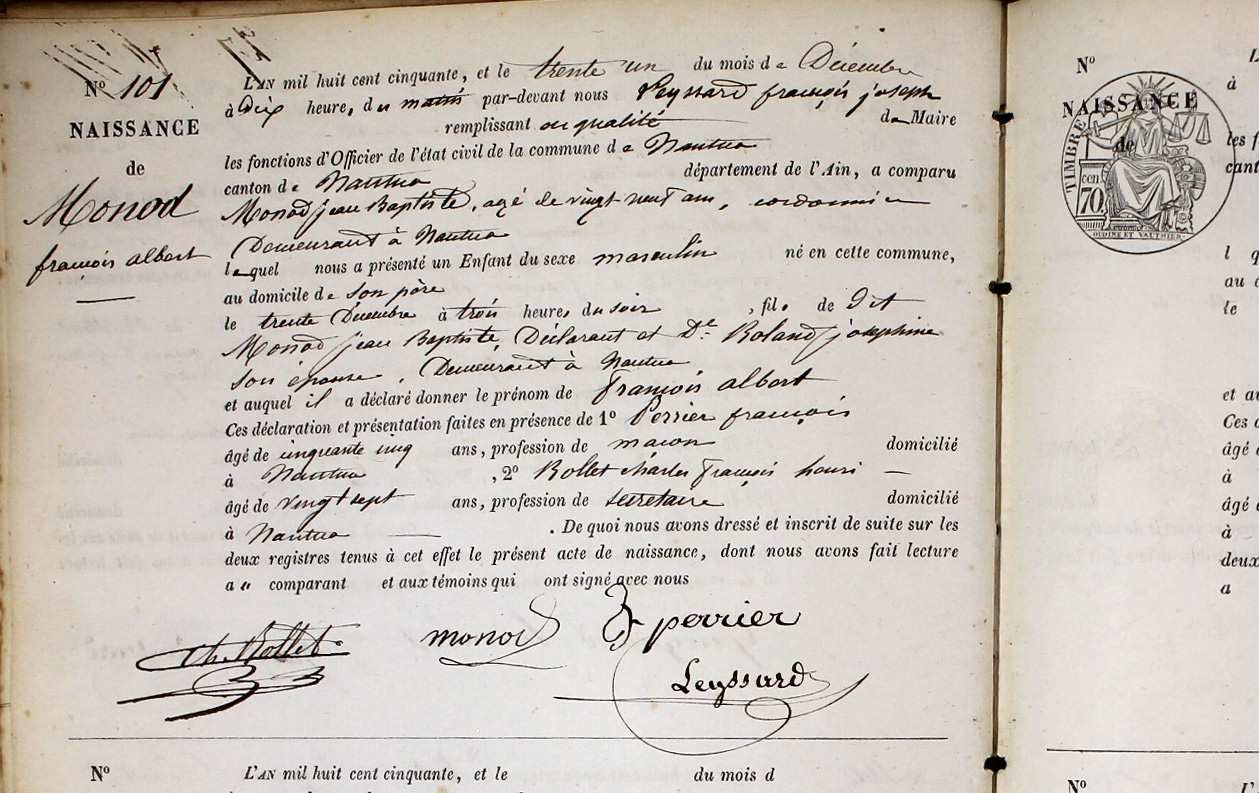 Nº 101
NAISSANCE
de
Monod
françois albert
L'AN mil huit cent cinquante, et le trente un du mois de Décembre
à Dix heure, du matin par-devant nous Leyssard françois joseph
remplissant en qualité de Maire
les fonctions d'Officier de l'état civil de la commune de Nantua
canton de Nantua département de l'Ain, a comparu
Monod jean Baptiste, agé de vingt neuf ans, cordonnier
Demeurant à Nantua
lequel nous a présenté un Enfant du sexe masculin né en cette commune,
au domicile de son père
le trente Décembre à trois heures du soir, fils de dit
Monod jean Baptiste, Déclarant et De. Roland josephine
son épouse, Demeurant à Nantua
et auquel il a déclaré donner le prénom de françois albert
Ces déclaration et présentation faites en présence de 1º Perrier françois
âgé de cinquante cinq ans, profession de maçon domicilié
à Nantua, 2º Bollet charles françois henri
âgé de vingt sept ans, profession de secretaire domicilié
à Nantua. De quoi nous avons dressé et inscrit de suite sur les
deux registres tenus à cet effet le présent acte de naissance, dont nous avons fait lecture
au comparant et aux témoins qui ont signé avec nous
Ch. Bollet monod f perrier
Leyssard
Nº L'AN mil huit cent cinquante, et le du mois d
Nº
NAISSANCE
de
TIMBRE
70 cen
OUDINÉ ET VAUTHIER
à
les f
cant
l q
au d
le
et au
Ces d
âgé d
à
âgé d
à
deux
a
Nº L'